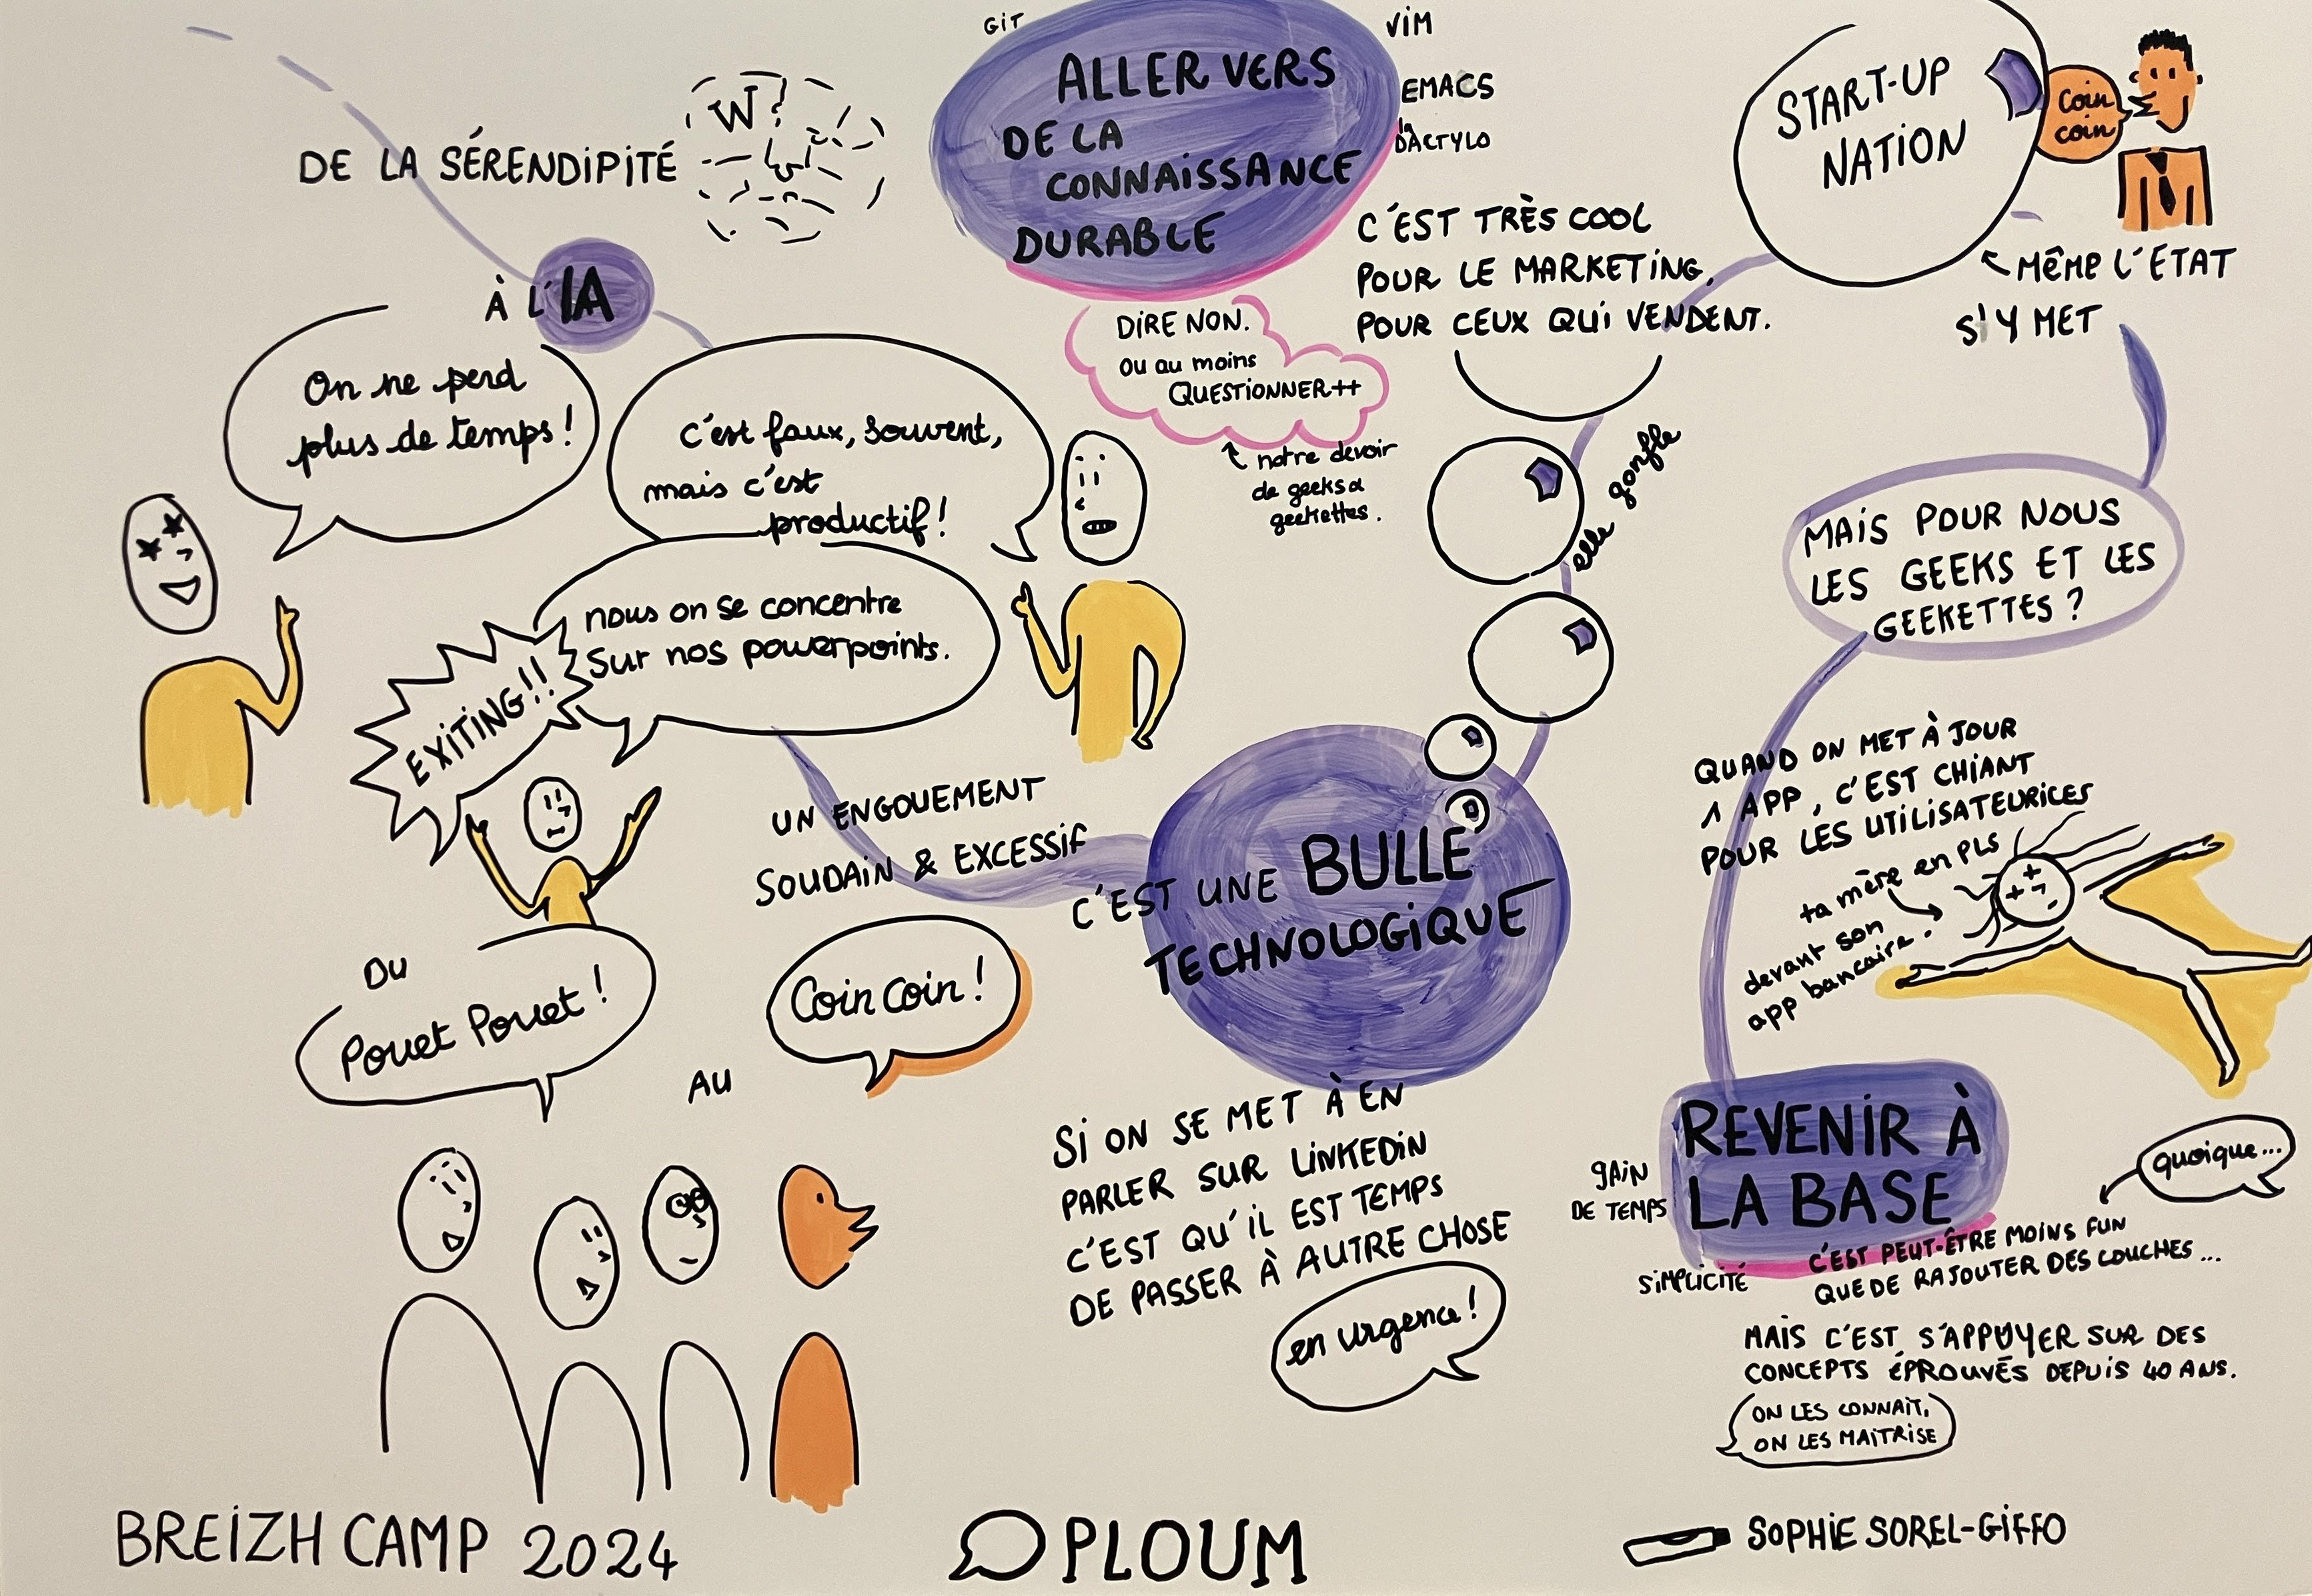 DE LA SÉRENDIPITÉ
W?
À L'IA
On ne perd
plus de temps!
c'est faux, souvent,
mais c'est
productif!
nous on se concentre
sur nos powerpoints.
EXITING!!
UN ENGOUEMENT
SOUDAIN & EXCESSIF
C'EST UNE BULLE
TECHNOLOGIQUE
DU
Pouet Pouet!
AU
Coin Coin!
SI ON SE MET À EN
PARLER SUR LINKEDIN
C'EST QU'IL EST TEMPS
DE PASSER À AUTRE CHOSE
en urgence!
elle gonfle
C'EST TRÈS COOL
POUR LE MARKETING,
POUR CEUX QUI VENDENT.
START-UP
NATION
Coin
coin
MÊME L'ETAT
S'Y MET
MAIS POUR NOUS
LES GEEKS ET LES
GEEKETTES?
QUAND ON MET À JOUR
1 APP, C'EST CHIANT
POUR LES UTILISATEURICES
ta mère en PLS
devant son
app bancaire.
REVENIR À
LA BASE
GAIN
DE TEMPS
SIMPLICITÉ
quoique...
C'EST PEUT-ÊTRE MOINS FUN
QUE DE RAJOUTER DES COUCHES...
MAIS C'EST S'APPUYER SUR DES
CONCEPTS ÉPROUVÉS DEPUIS 40 ANS.
ON LES CONNAIT,
ON LES MAITRISE
ALLER VERS
DE LA
CONNAISSANCE
DURABLE
GIT
VIM
EMACS
la
DACTYLO
DIRE NON.
OU au moins
QUESTIONNER++
notre devoir
de geeks &
geekettes.
BREIZH CAMP 2024
PLOUM
SOPHIE SOREL-GIFFO